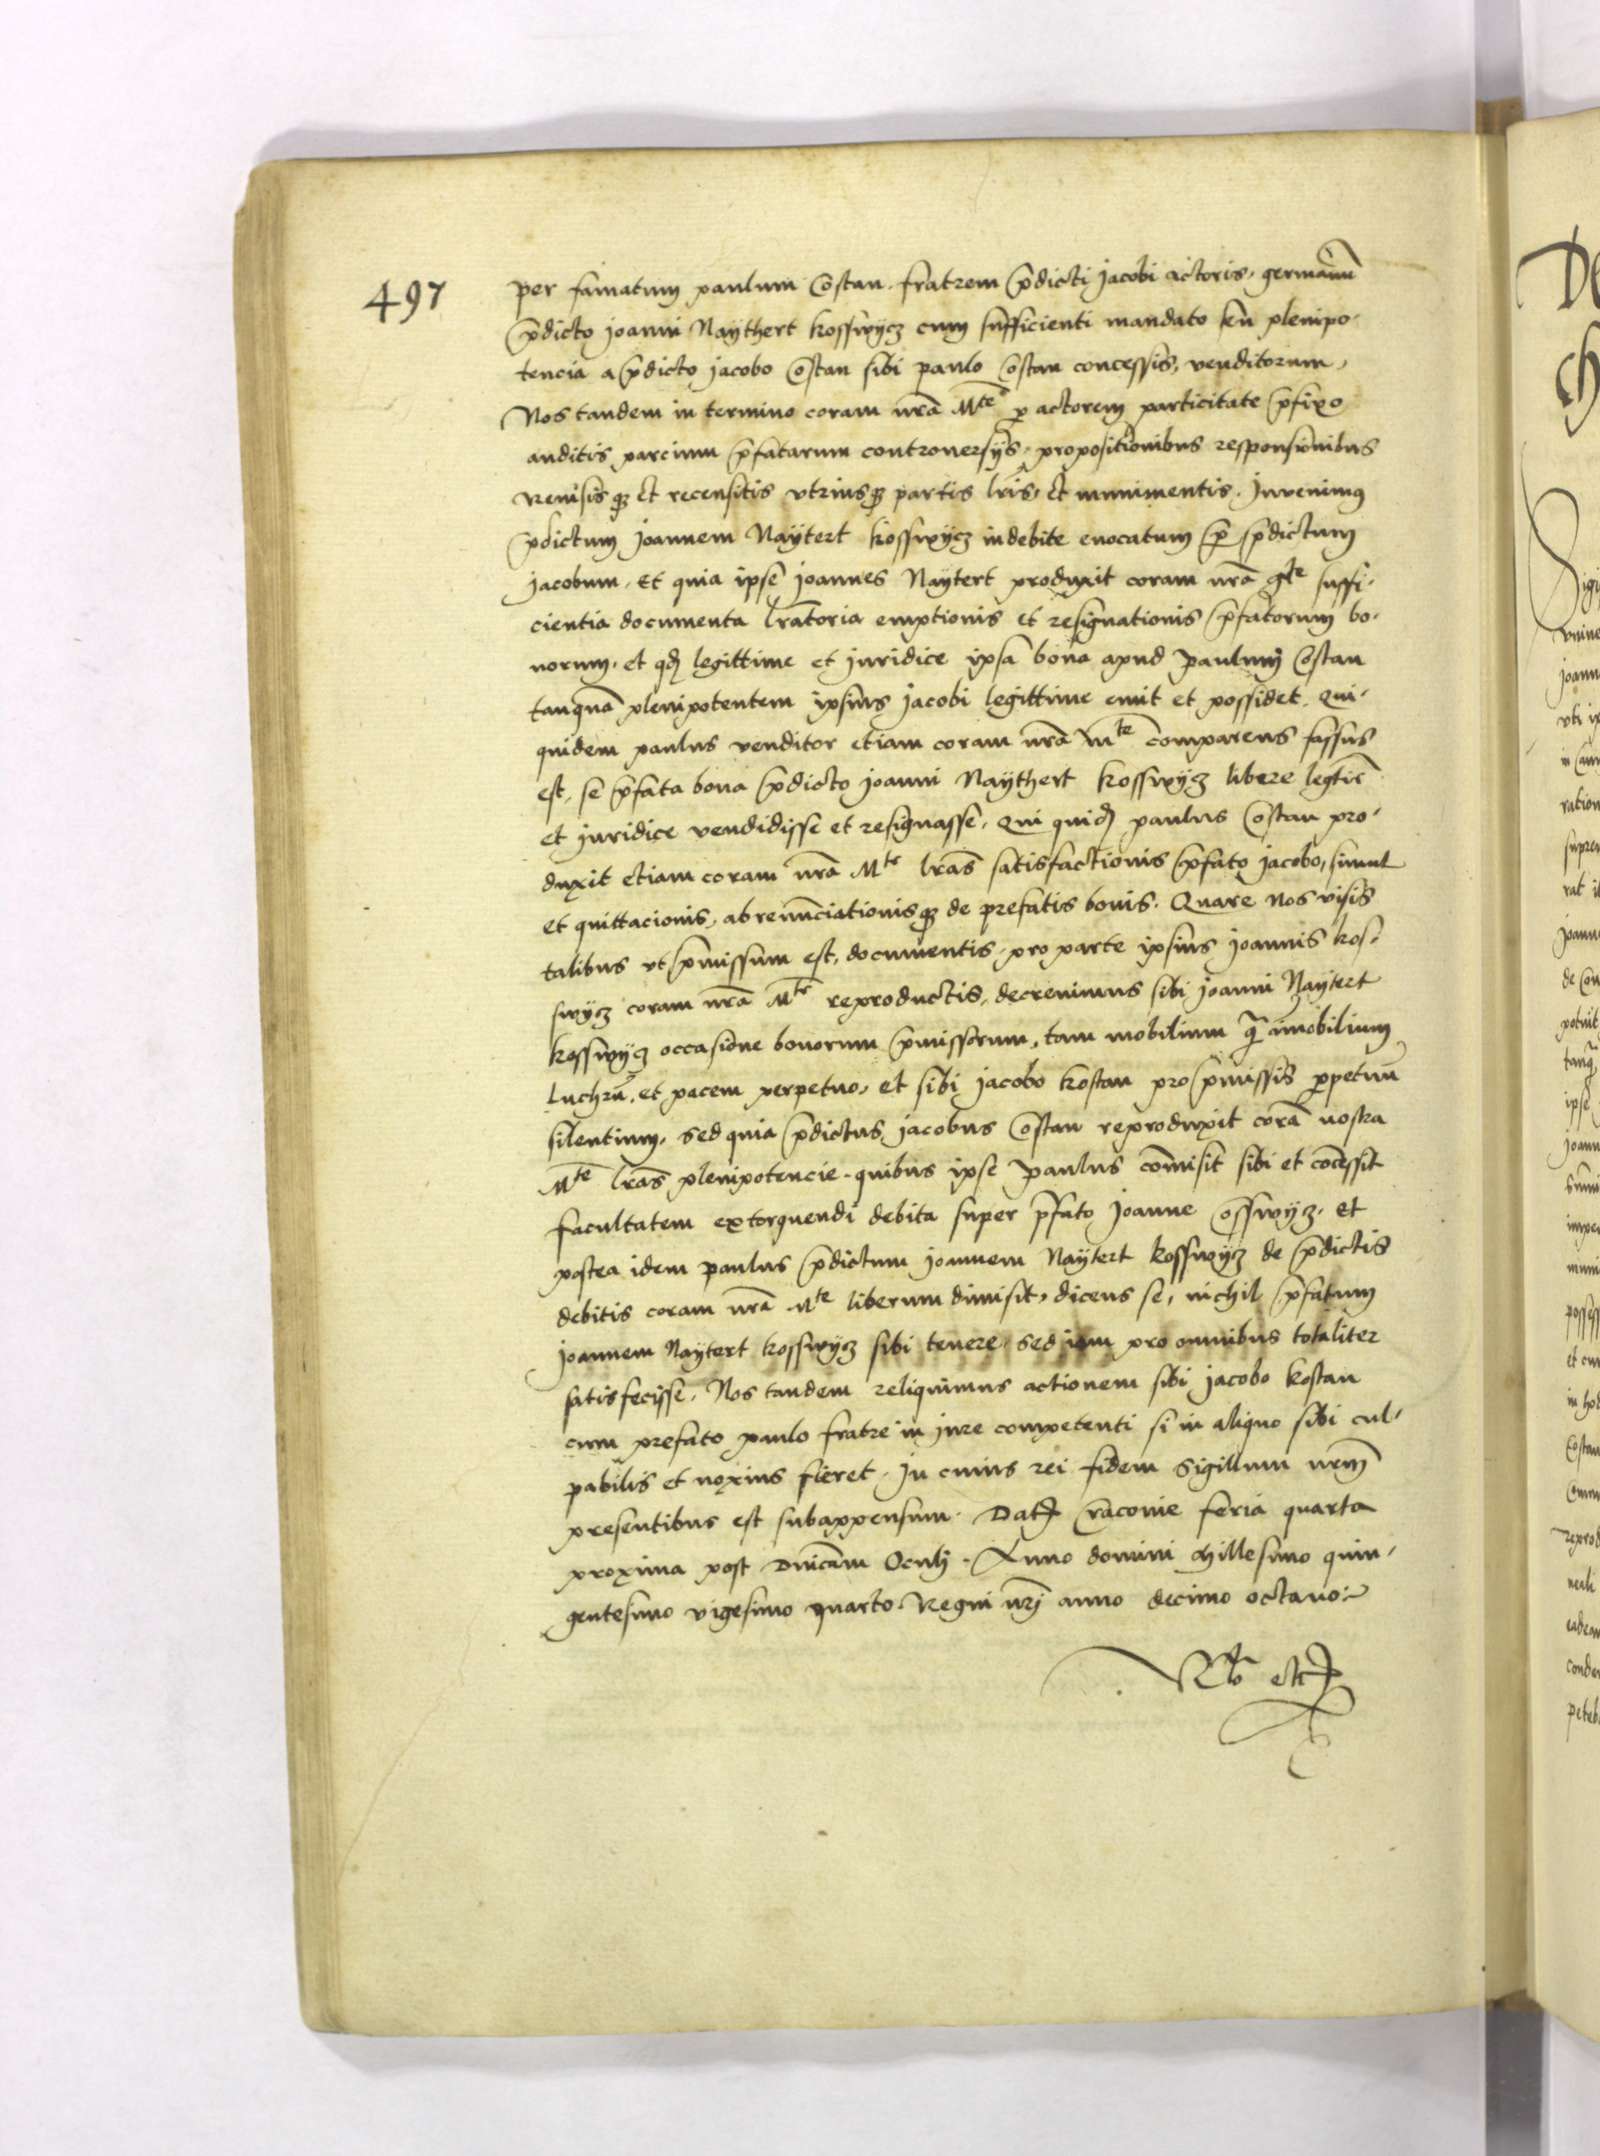 497
per famatum paulum Costan fratrem p̄dicti Jacobi actoris germanū
p̄dicto joanni Naythert kossvycz cum sufficienti mandato seu plenipo-
tencia a p̄dicto jacobo Costan sibi paulo Costan concessis, venditorum,
Nos tandem in termino coram nr̄a Mte p actorem particitate p̄fixo
auditis parcium p̄fatarum controversijs, propositionibus responsionibus
Revisis qz et recensitis vtriusqz partis lr̄is, et munimentis. Invenimus
p̄dictum Joannem Naytert kossvycz indebite evocatum per p̄dictum
Jacobum. Et quia ipse Joannes Naytert produxit coram nr̄a Mte suffi-
cientia documenta lr̄atoria emptionis et resignationis p̄fatorum bo-
norum, et qd legittime et juridice ipsa bona apud paulum Costan
tanquā plenipotentem ipsius jacobi legittime emit et possidet, Qui-
quidem paulus venditor etiam coram nr̄a Mte comparens fassus
est, se p̄fata bona p̄dicto joanni Naythert kossvycz libere legtīe
et juridice vendidisse et resignasse, Qui quid paulus Costan pro-
duxit etiam coram nr̄a Mte lr̄as satisfactionis p̄fato jacobo, simul
et quittacionis, abrenūciationisqz de prefatis bonis. Quare Nos visis
talibus vt p̄missum est, documentis, pro parte ipsius joannis kos-
svycz coram nr̄a Mte reproductis, decrevimus sibi joanni Naytert
kossvycz occasione bonorum p̄missorum, tam mobilium q̄ īmobilium
Luchrū, et pacem perpetuo, et sibi jacobo kostan pro p̄missis ppetuū
silentium, sed quia p̄dictus jacobus Costan reproduxit corā nostra
Mte lr̄as plenipotencie, quibus ipse paulus cōmisit sibi et cōcessit
facultatem extorquendi debita super p̄fato Joanne Cossvycz, et
postea idem paulus p̄dictum joannem Naytert kossvycz de p̄dictis
debitis coram nr̄a Mte liberum dimisit, dicens se, nichil p̄fatum
joannem Naytert kossvycz sibi tenere, sed iam pro omnibus totaliter
satisfecisse, Nos tandem reliquimus actionem sibi jacobo kostan
cum prefato paulo fratre in jure competenti si in aliquo sibi cul-
pabilis et noxius fieret. In cuius rei fidem sigillum nr̄m
presentibus est subappensum. Dat Cracovie feria quarta
proxima post Dnīcam Oculj. Anno domini Millesimo quin-
gentesimo vigesimo quarto. Regni nr̄j anno decimo octavo: